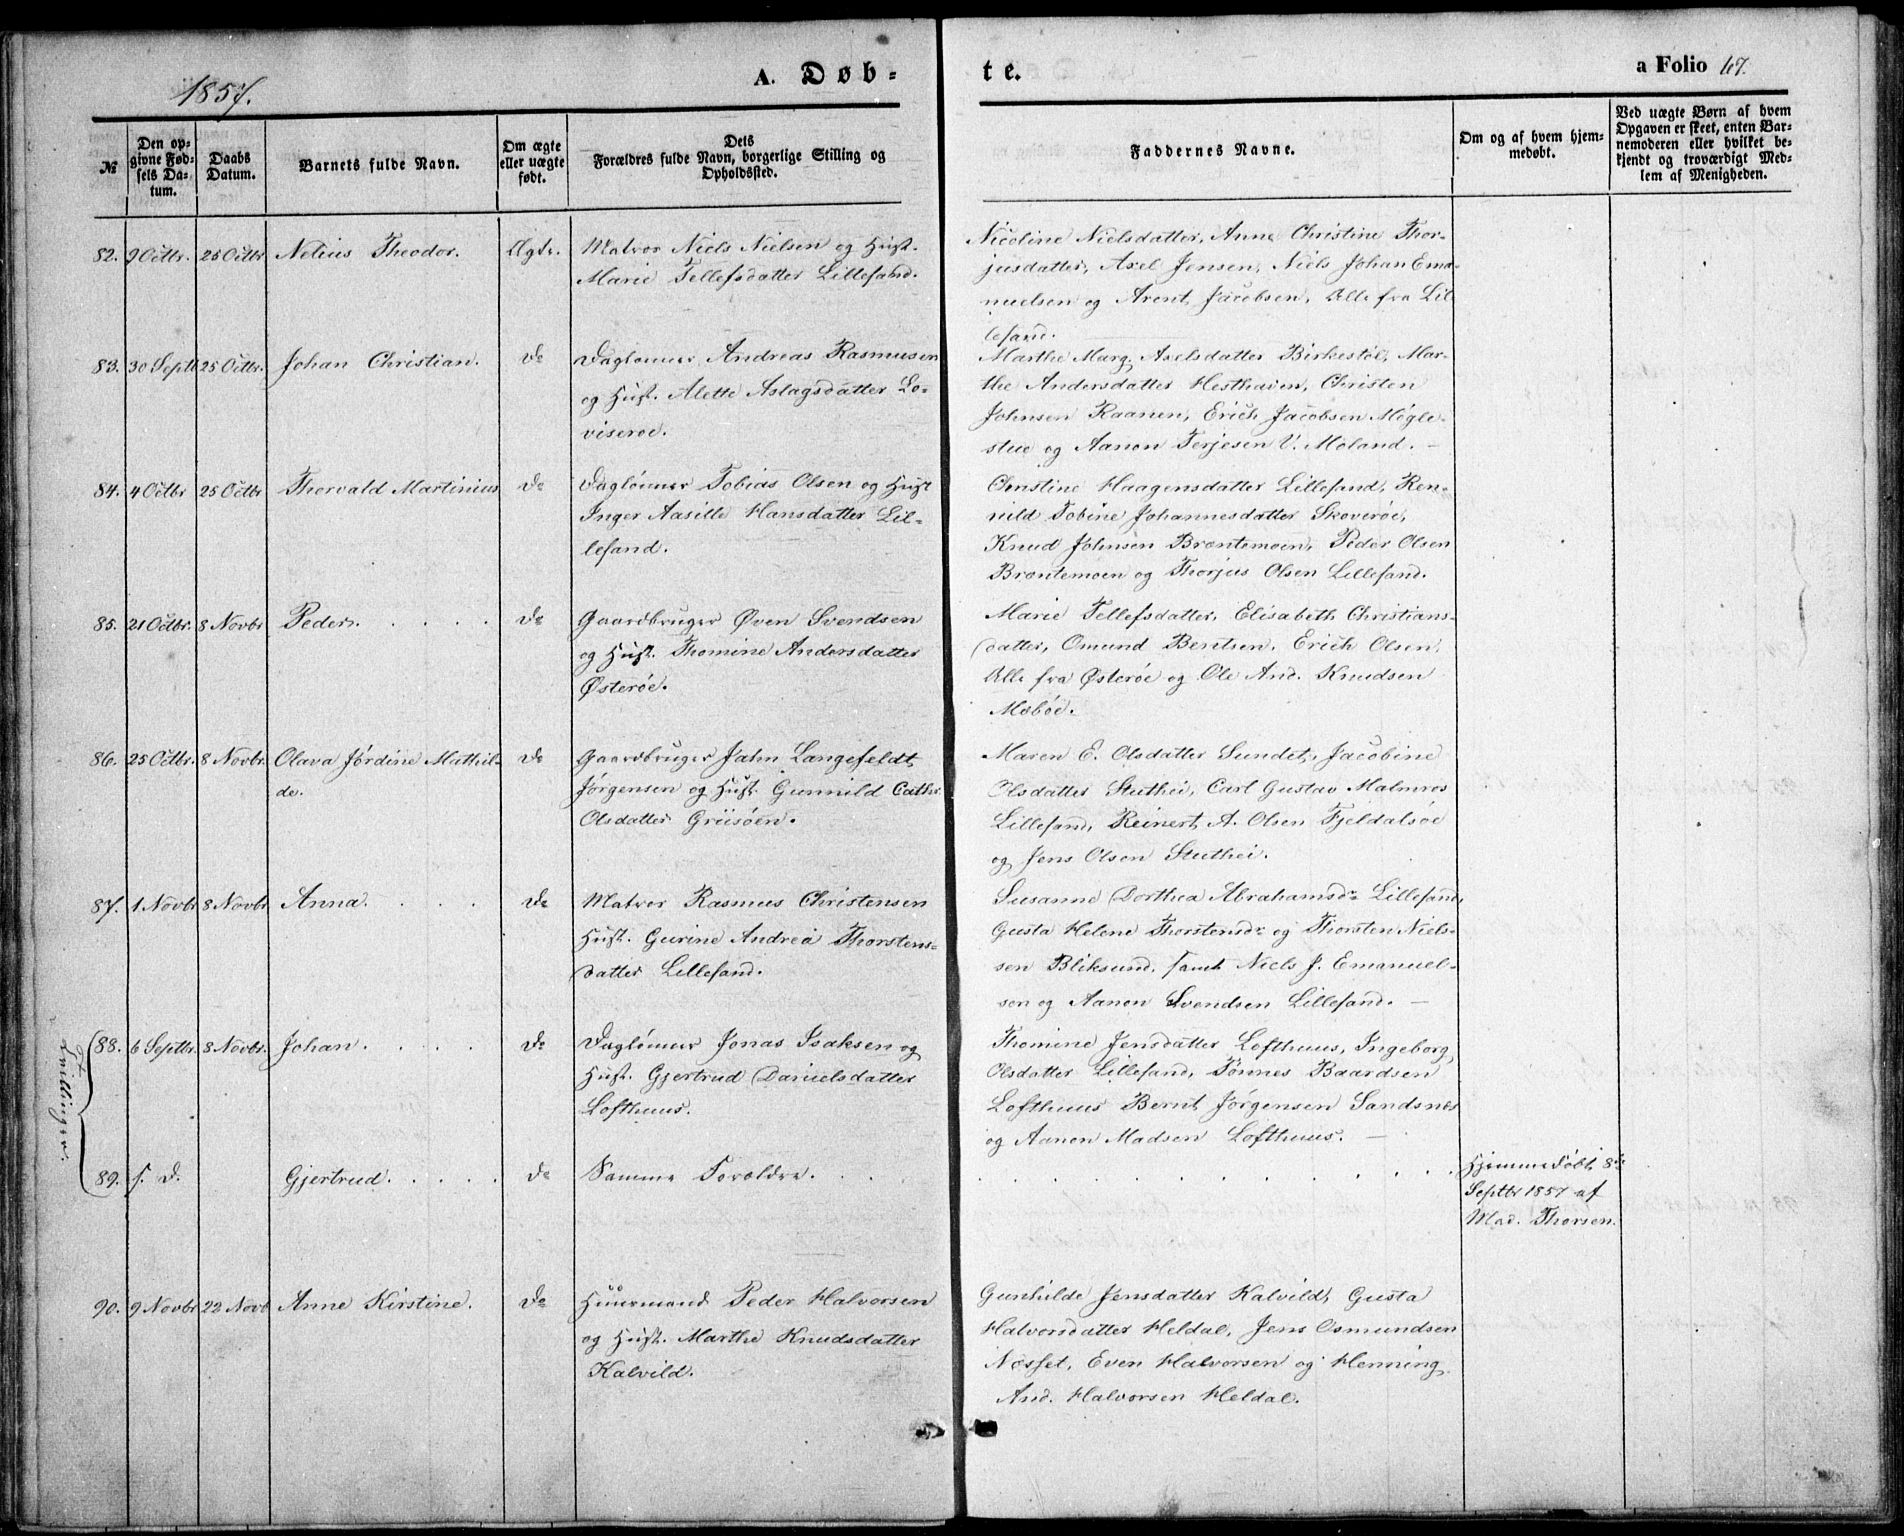 1857.
A. Døb=
te.
a Folio 67.
№
Den op-
givne Fød-
sels Da-
tum.
Daabs
Datum.
Barnets fulde Navn.
Om ægte
eller uægte
født.
Dets
Forældres fulde Navn, borgerlige Stilling og
Opholdssted.
Faddernes Navne.
Om og af hvem hjem-
medøbt.
Ved uægte Børn af hvem
Opgaven er skeet, enten Bar-
nemoderen eller hvilket be-
kjendt og troværdigt Med-
lem af Menigheden.
82. 9 Octbr. 25 Octbr Nelius Theodor. Ægte. Matros Niels Nielsen og Hust.
Marie Tellefsdatter Lillesand.
Nicoline Nielsdatter, Anne Christine Thor-
jusdatter, Axel Jensen, Niels Johan Ema-
nuelsen og Arent Jacobsen, Alle fra Lil
lesand.
83. 30 Septb 25 Octbr. Johan Christian. Do Daglønner Andreas Rasmusen
og Hust. Alette Aslagsdatter Lo-
viseroe.
Marthe Marg. Axelsdatter Birkestøl, Mar-
the Andersdatter Hesthaven, Christen
Johnsen Raanen, Erich Jacobsen Møgle-
stue og Aanon Terjesen V. Moland. —
84. 4 Octbr 25 Octbr Thorvald Martinius Do Daglønner Tobias Olsen og Hust
Inger Aasille Hansdatter Lil-
lesand.
Christine Haagensdatter Lillesand, Ren-
nild Tobine Johannesdatter Skoveröe,
Knud Johnsen Bræntemoen, Peder Olsen
Bræntemoen og Thorjus Olsen Lillesand.
85. 21 Octbr. 8 Novbr Peder. . . . . Do Gaardbruger Øven Svendsen
og Hust. Thomine Andersdatter
Østerøe.
Marie Tellefsdatter, Elisabeth Christians-
datter, Omund Bentsen, Erich Olsen,
Alle fra Østerøe og Ole And. Knudsen
Mæbøe.
86. 25 Octbr. 8 Novbr. Olava Jørdine Mathil-
de. Do Gaardbruger Jahn Langefeldt
Jørgensen og Hust. Gunnild Cathr.
Olsdatter Griisøen.
Maren E. Olsdatter Sundet, Jacobine
Olsdatter Stuthei, Carl Gustav Malmros
Lillesand, Reinert A. Olsen Fjeldalsøe
og Jens Olsen Stuthei.
87. 1 Novbr 8 Novbr Anna. . . . . Do Matros Rasmus Christensen
Hust. Gurine Andrea Thorstens-
datter Lillesand.
Susanne Dorthea Abrahamsdr Lillesand,
Gusta Helene Thorstensdr og Thorsten Niels-
sen Bliksund, samt Niels J. Emanuel-
sen og Aanon Svendsen Lillesand. —
Tvillinger.
88. 6 Septbr. 8 Novbr. Johan. . . . . Do Daglønner Jonas Isaksen og
Hust. Gjertrud Danielsdatter
Lofthuus.
Thomine Jensdatter Lofthuus, Ingeborg
Olsdatter Lillesand, Tønnes Baardsen
Lofthuus Bernt Jørgensen Sandsnes
og Aanon Madsen Lofthuus. —
89. s. D. Gjertrud. . . . . Do Samme Forældre. . . .
Hjemmedøbt 8de
Septbr 1857 af
Mad. Thorsen.
90. 9 Novbr 22 Novb Anne Kirstine. Do Huusmand Peder Halvorsen
og Hust. Marthe Knudsdatter
Kalvild.
Gunhilde Jensdatter Kalvild, Gusta
Halvorsdatter Heldal, Jens Osmundsen
Næsset, Even Halvorsen og Henning
And. Halvorsen Heldal.